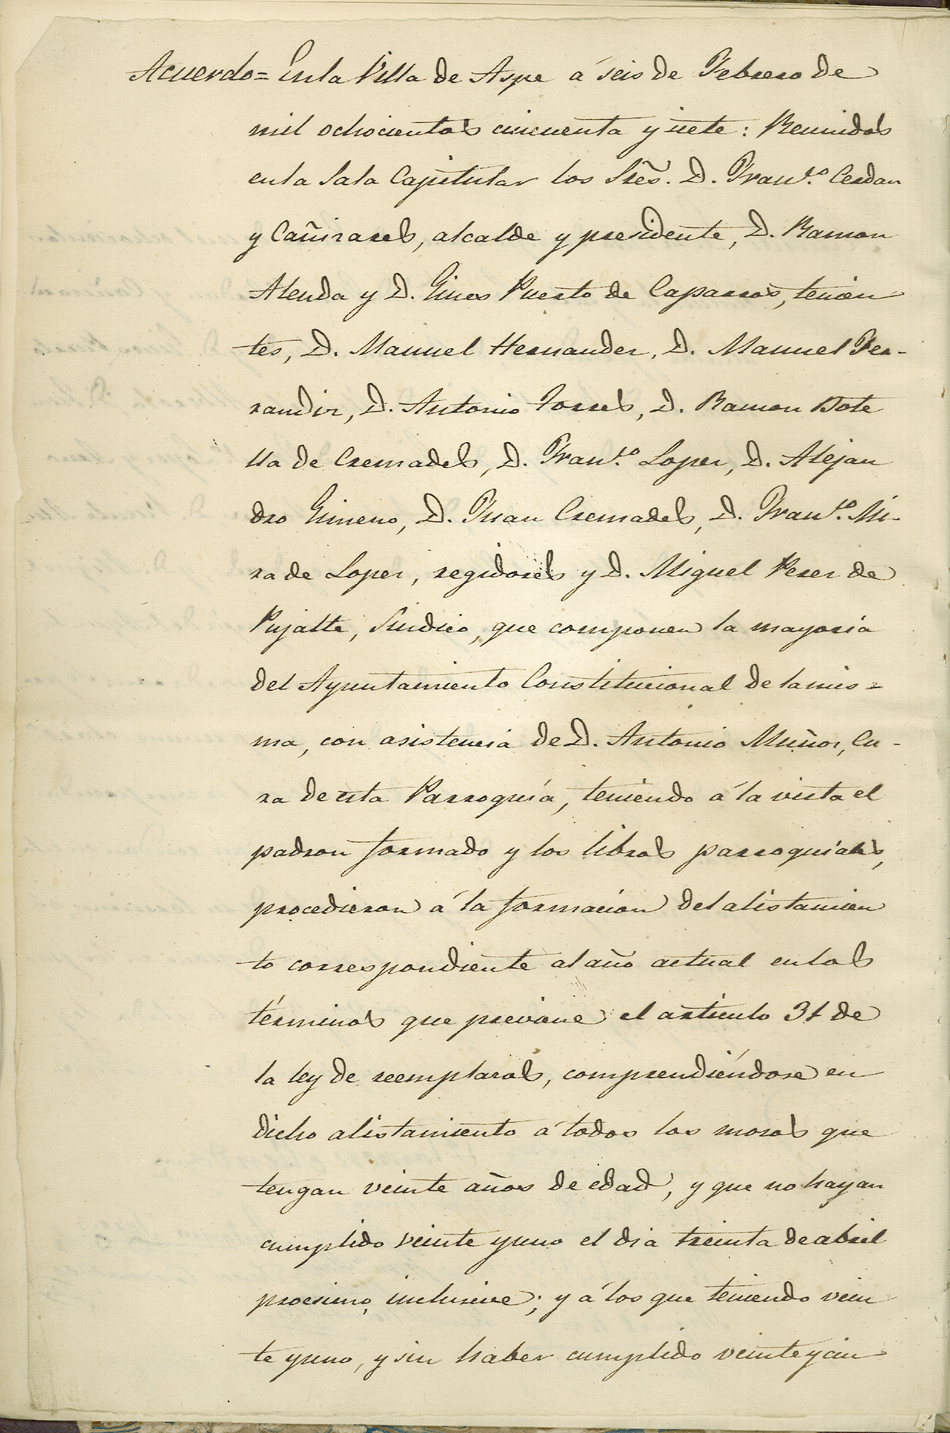 Acuerdo = En la Villa de Aspe á seis de Febrero de
mil ochocientos cincuenta y siete: Reunidos
en la Sala Capitular los Sres. D. Franco. Cerdan
y Cañizares, alcalde y presidente, D. Ramon
Alenda y D. Gines Puerto de Caparros, tenien
tes, D. Manuel Hernandez, D. Manuel Fer-
randiz, D. Antonio Torres, D. Ramon Bote
lla de Cremades, D. Franco. Lopez, D. Alejan
dro Gimeno, D. Juan Cremades, D. Franco. Mi-
ra de Lopez, regidores y D. Miguel Perez de
Pujalte, Sindico, que componen la mayoria
del Ayuntamiento Constitucional de la mis=
ma, con asistencia de D. Antonio Muñoz, Cu-
ra de esta Parroquia, teniendo á la vista el
padron formado y los libros parroquiales,
procedieron á la formacion del alistamien
to correspondiente al año actual en los
términos que previene el articulo 31 de
la ley de reemplazos, comprendiéndose en
dicho alistamiento á todos los mozos que
tengan veinte años de edad, y que no hayan
cumplido veinte y uno el dia treinta de abril
procsimo, inclusive; y á los que teniendo vein
te y uno, y sin haber cumplido veinte y cin